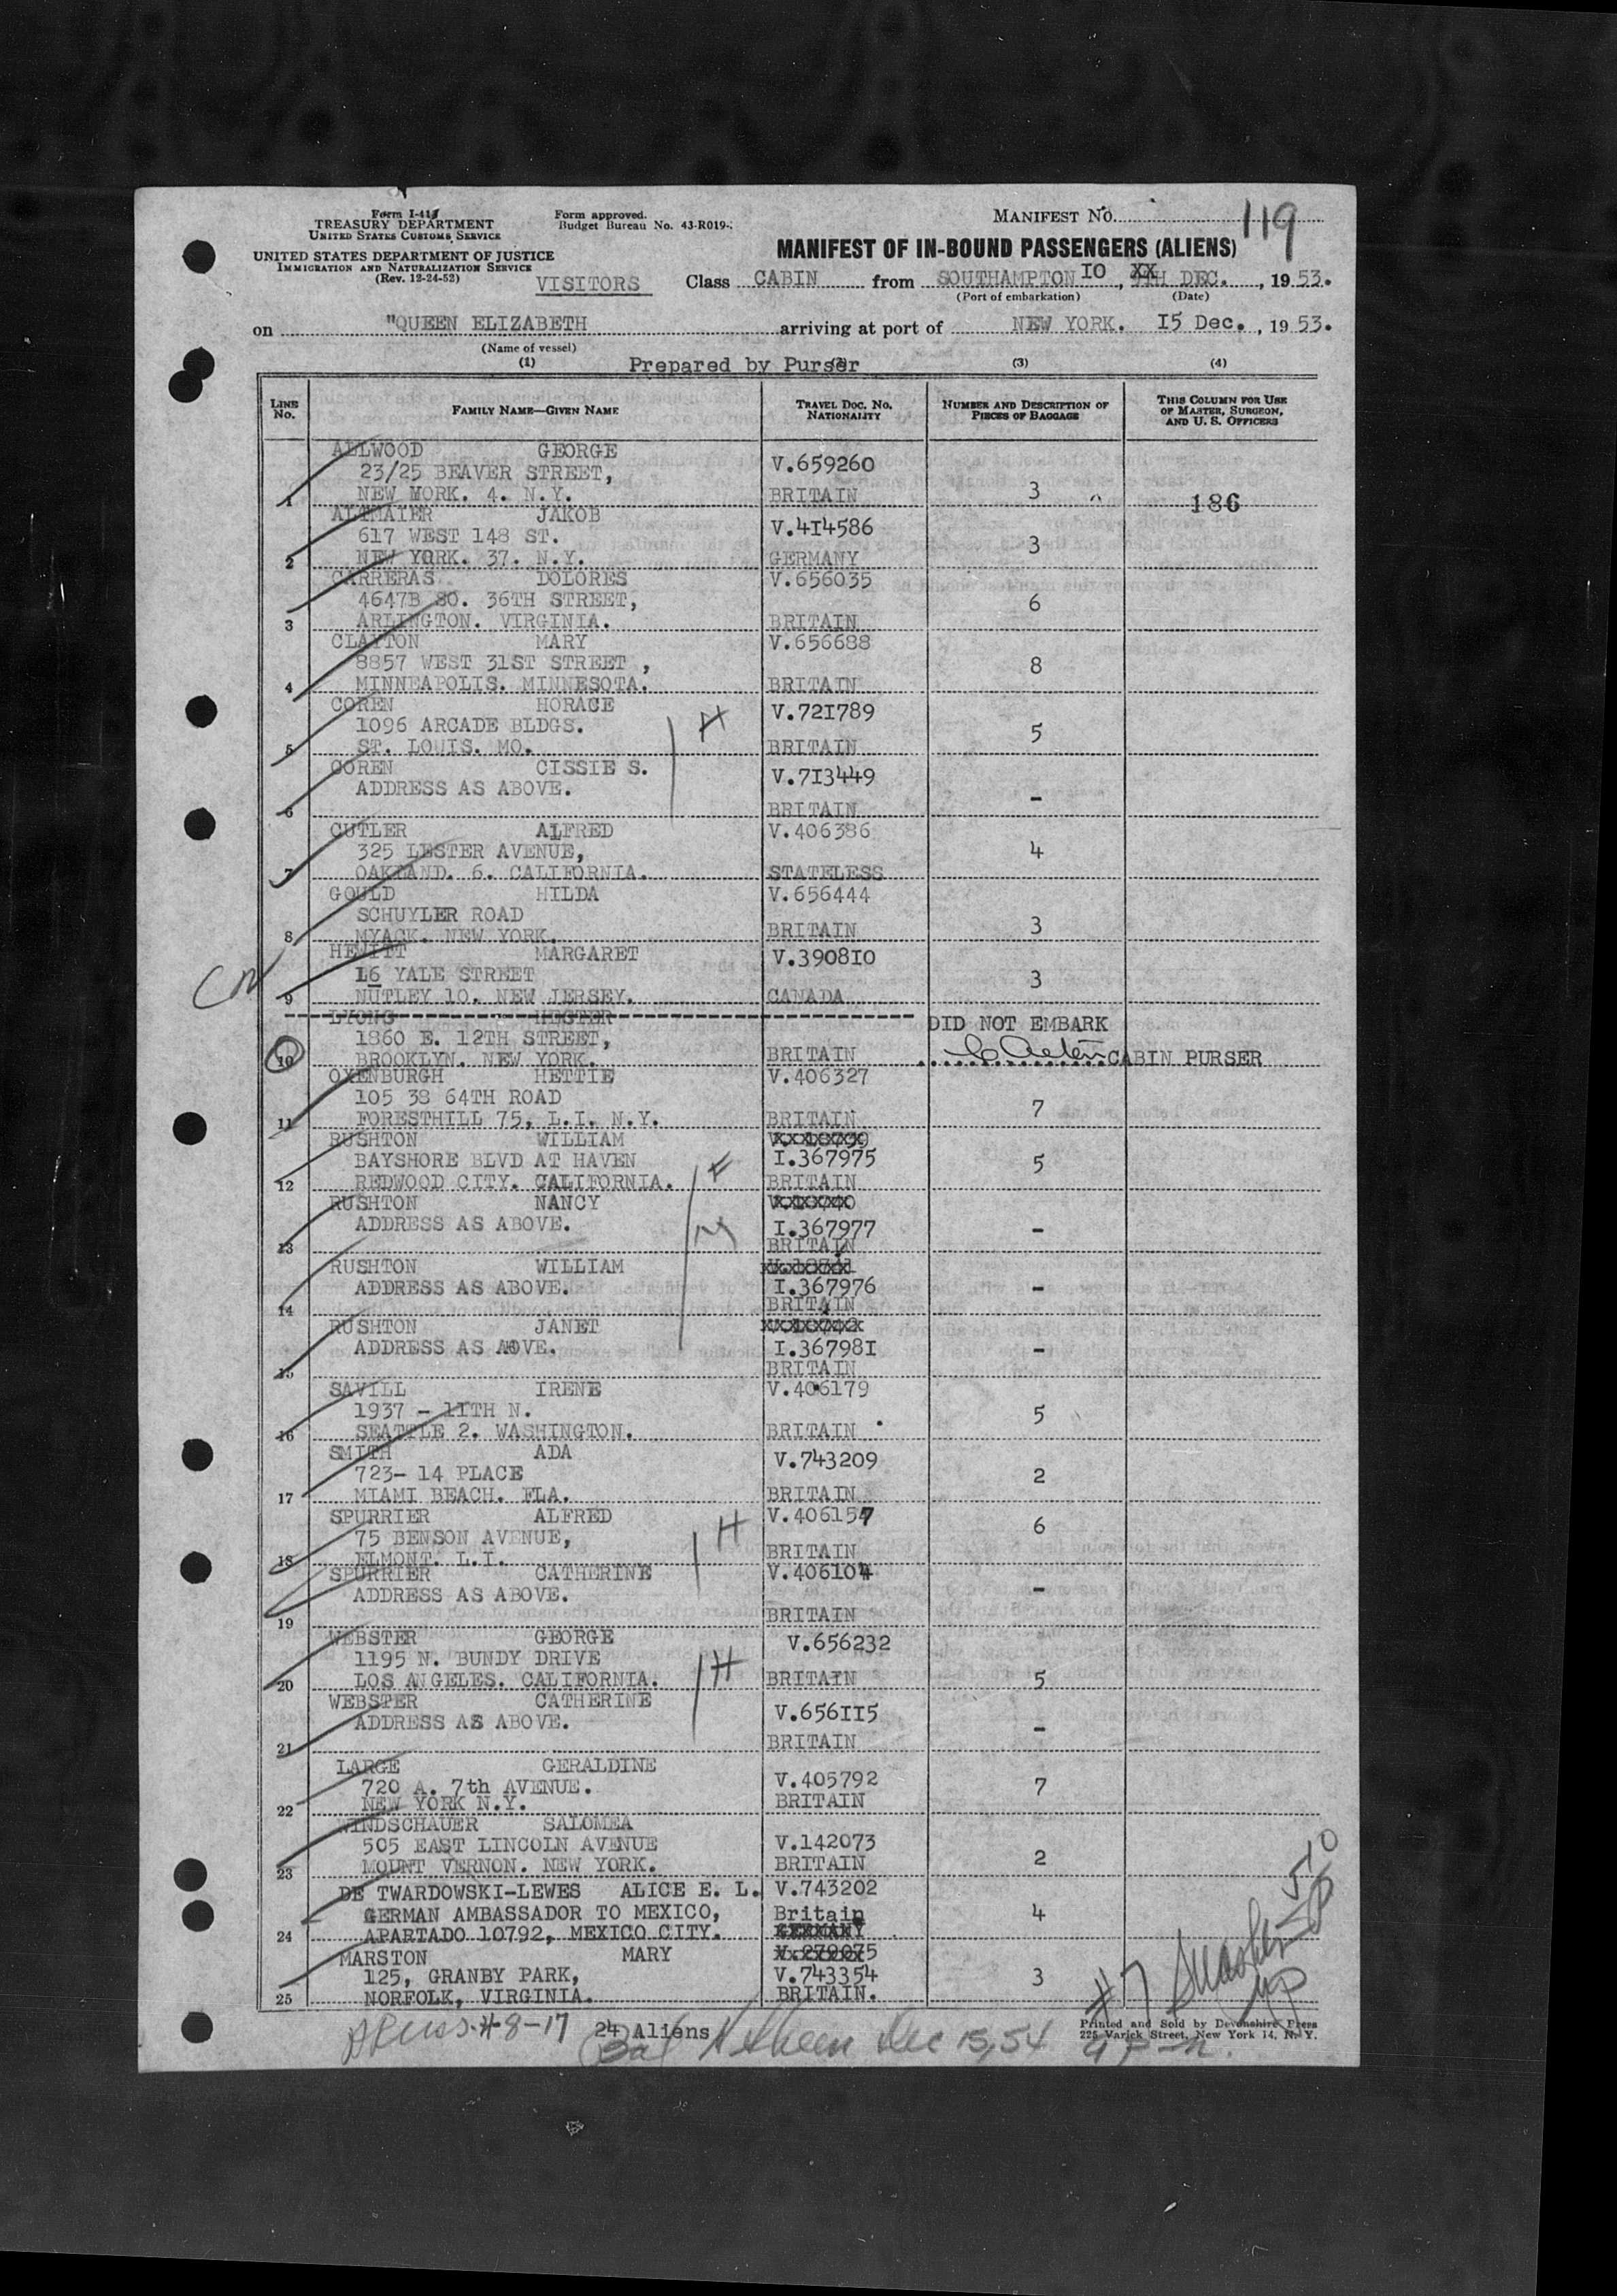 TREASURY DEPARTMENT
UNITED STATES CUSTOMS SERVICE
UNITED STATES DEPARTMENT OF JUSTICE
IMMIGRATION AND NATURALIZATION SERVICE
(Rev. 12-24-52)
Form approved.
Budget Bureau No. 43-R019-
MANIFEST NO. 119
MANIFEST OF IN-BOUND PASSENGERS (ALIENS)
VISITORS Class CABIN from SOUTHAMPTON IO, XXH DEC., 1953.
(Port of embarkation) (Date)
on "QUEEN ELIZABETH arriving at port of NEW YORK. I5 Dec., 1953.
(Name of vessel)
(1) Prepared by Purser (3) (4)
LINE No. FAMILY NAME—GIVEN NAME TRAVEL DOC. NO. NATIONALITY NUMBER AND DESCRIPTION OF PIECES OF BAGGAGE THIS COLUMN FOR USE OF MASTER, SURGEON, AND U. S. OFFICERS
ALLWOOD GEORGE
23/25 BEAVER STREET, V.659260
1 NEW MORK. 4. N.Y. BRITAIN 3 186
ALTMAIER JAKOB V.4I4586
617 WEST 148 ST. 3
2 NEW YORK. 37. N.Y. GERMANY
CARRERAS DOLORES V.656035
4647B SO. 36TH STREET, 6
3 ARLINGTON. VIRGINIA. BRITAIN
CLAYTON MARY V.656688
8857 WEST 31ST STREET , 8
4 MINNEAPOLIS. MINNESOTA. BRITAIN
COREN HORACE V.72I789
1096 ARCADE BLDGS. H 5
5 ST. LOUIS. MO. BRITAIN
COREN CISSIE S. V.7I3449
ADDRESS AS ABOVE. -
6 BRITAIN
CUTLER ALFRED V.406386
325 LESTER AVENUE, 4
7 OAKLAND. 6. CALIFORNIA. STATELESS
GOULD HILDA V.656444
SCHUYLER ROAD 3
8 MYACK. NEW YORK. BRITAIN
HEWITT MARGARET V.3908IO
16 YALE STREET 3
9 NUTLEY 10. NEW JERSEY. CANADA
LYONS HESTER DID NOT EMBARK
1860 E. 12TH STREET,
10 BROOKLYN. NEW YORK. BRITAIN CABIN PURSER
OXENBURGH HETTIE V.406327
105 38 64TH ROAD 7
11 FORESTHILL 75, L.I. N.Y. BRITAIN
RUSHTON WILLIAM
BAYSHORE BLVD AT HAVEN I.367975 5
12 REDWOOD CITY. CALIFORNIA. F BRITAIN
RUSHTON NANCY
ADDRESS AS ABOVE. I.367977 -
13 BRITAIN
RUSHTON WILLIAM
ADDRESS AS ABOVE. I.367976 -
14 BRITAIN
RUSHTON JANET
ADDRESS AS AOVE. I.36798I -
15 BRITAIN
SAVILL IRENE V.406179
1937 - 11TH N. 5
16 SEATTLE 2. WASHINGTON. BRITAIN
SMITH ADA V.743209
723- 14 PLACE 2
17 MIAMI BEACH. FLA. BRITAIN
SPURRIER ALFRED V.406157
75 BENSON AVENUE, H 6
18 ELMONT. L.I. BRITAIN
SPURRIER CATHERINE V.406104
ADDRESS AS ABOVE. -
19 BRITAIN
WEBSTER GEORGE V.656232
1195 N. BUNDY DRIVE
20 LOS ANGELES. CALIFORNIA. H BRITAIN 5
WEBSTER CATHERINE V.656II5
ADDRESS AS ABOVE. -
21 BRITAIN
LARGE GERALDINE
720 A. 7th AVENUE. V.405792 7
22 NEW YORK N.Y. BRITAIN
WINDSCHAUER SALOMEA
505 EAST LINCOLN AVENUE V.142073
23 MOUNT VERNON. NEW YORK. BRITAIN 2
DE TWARDOWSKI-LEWES ALICE E. L. V.743202
GERMAN AMBASSADOR TO MEXICO, Britain 4
24 APARTADO 10792, MEXICO CITY. GERMANY
MARSTON MARY
125, GRANBY PARK, V.743354 3
25 NORFOLK, VIRGINIA. BRITAIN.
24 Aliens
Dec 15, 54
Printed and Sold by Devonshire Press
225 Varick Street, New York 14, N. Y.